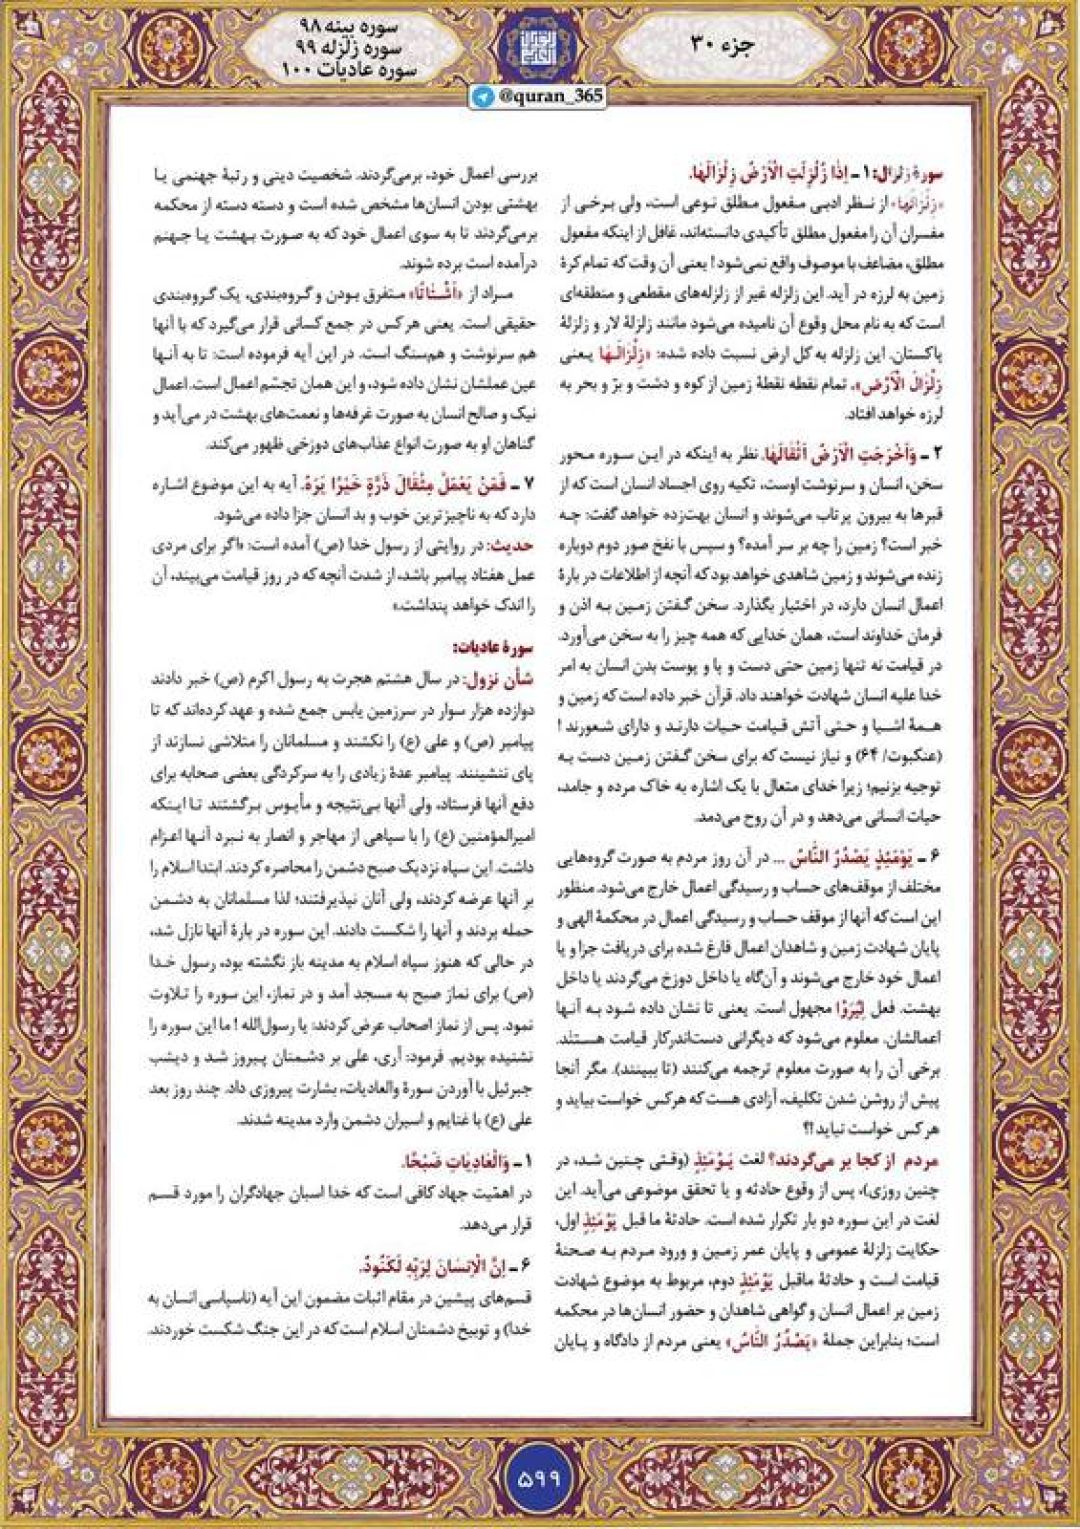 جزء ۳۰
سوره بینه ۹۸
سوره زلزله ۹۹
سوره عادیات ۱۰۰
@quran_365
سورهٔ زلزال: ۱ ـ اِذٰا زُلْزِلَتِ الْاَرْضُ زِلْزٰالَهٰا.
«زِلْزٰالَهٰا» از نـظر ادبی مـفعول مـطلق نوعی است، ولی برخی از
مفسران آن را مفعول مطلق تأکیدی دانسته‌اند، غافل از اینکه مفعول
مطلق، مضاعف با موصوف واقع نمی‌شود! یعنی آن وقت که تمام کرهٔ
زمین به لرزه در آید. این زلزله غیر از زلزله‌های مقطعی و منطقه‌ای
است که به نام محل وقوع آن نامیده می‌شود مانند زلزلهٔ لار و زلزلهٔ
پاکستان. این زلزله به کل ارض نسبت داده شده: «زِلْزٰالَهٰا یـعنی
زِلْزٰالَ الْاَرْض»، تمام نقطه نقطهٔ زمین از کوه و دشت و برّ و بحر به
لرزه خواهد افتاد.
۲ ـ وَاَخْرَجَتِ الْاَرْضُ اَثْقٰالَهٰا. نظر به اینکه در ایـن سوره محور
سخن، انسان و سرنوشت اوست، تکیه روی اجساد انسان است که از
قبرها به بیرون پرتاب می‌شوند و انسان بهت‌زده خواهد گفت: چـه
خبر است؟ زمین را چه بر سر آمده؟ و سپس با نفخ صور دوم دوباره
زنده می‌شوند و زمین شاهدی خواهد بود که آنچه از اطلاعات در بارهٔ
اعمال انسان دارد، در اختیار بگذارد. سخن گـفتن زمـین بـه اذن و
فرمان خداوند است، همان خدایی که همه چیز را به سخن می‌آورد.
در قیامت نه تنها زمین حتی دست و پا و پوست بدن انسان به امر
خدا علیه انسان شهادت خواهند داد. قرآن خبر داده است که زمین و
همهٔ اشیـا و حتـی آتش قیامت حیات دارند و دارای شعورند!
(عنکبوت/ ۶۴) و نیاز نیست که برای سخن گـفتن زمـین دست بـه
توجیه بزنیم؛ زیرا خدای متعال با یک اشاره به خاک مرده و جامد،
حیات انسانی می‌دهد و در آن روح می‌دمد.
۶ ـ یَوْمَئِذٍ یَصْدُرُ النّٰاسُ ... در آن روز مردم به صورت گروه‌هایی
مختلف از موقف‌های حساب و رسیدگی اعمال خارج می‌شود. منظور
این است که آنها از موقف حساب و رسیدگی اعمال در محکمهٔ الهی و
پایان شهادت زمین و شاهدان اعمال فارغ شده برای دریافت جزا و یا
اعمال خود خارج می‌شوند و آن‌گاه یا داخل دوزخ می‌گردند یا داخل
بهشت. فعل لِیُرَوْا مجهول است. یعنی تا نشان داده شـود بـه آنـها
اعمالشان. معلوم می‌شود که دیگرانی دست‌اندرکار قیامت هستند.
برخی آن را به صورت معلوم ترجمه می‌کنند (تا ببینند). مگر آنجا
پیش از روشن شدن تکلیف، آزادی هست که هرکس خواست بیاید و
هرکس خواست نیاید؟!
مردم از کجا بر می‌گردند؟ لغت یَـوْمَئِذٍ (وقتی چنین شد، در
چنین روزی)، پس از وقوع حادثه و یا تحقق موضوعی می‌آید. این
لغت در این سوره دو بار تکرار شده است. حادثهٔ ما قبل یَوْمَئِذٍ اول،
حکایت زلزلهٔ عمومی و پایان عمر زمـین و ورود مـردم بـه صـحنهٔ
قیامت است و حادثهٔ ماقبل یَوْمَئِذٍ دوم، مربوط به موضوع شهادت
زمین بر اعمال انسان و گواهی شاهدان و حضور انسان‌ها در محکمه
است؛ بنابراین جملهٔ «یَصْدُرُ النّٰاسُ» یعنی مردم از دادگاه و پـایان
بررسی اعمال خود، برمی‌گردند. شخصیت دینی و رتبهٔ جهنمی یـا
بهشتی بودن انسان‌ها مشخص شده است و دسته دسته از محکمه
برمی‌گردند تا به سوی اعمال خود که به صورت بـهشت یـا جـهنم
درآمده است برده شوند.
مـراد از «اَشْـتٰاتًا» مـتفرق بودن و گـروه‌بندی، یک گروه‌بندی
حقیقی است. یعنی هر کس در جمع کسانی قرار می‌گیرد که با آنها
هم سرنوشت و هم‌سنگ است. در این آیه فرموده است: تا به آنـها
عین عملشان نشان داده شود، و این همان تجسّم اعمال است. اعمال
نیک و صالح انسان به صورت غرفه‌ها و نعمت‌های بهشت در می‌آید و
گناهان او به صورت انواع عذاب‌های دوزخی ظهور می‌کند.
۷ ـ فَمَنْ یَعْمَلْ مِثْقٰالَ ذَرَّةٍ خَیْرًا یَرَهُ. آیه به این موضوع اشاره
دارد که به ناچیزترین خوب و بد انسان جزا داده می‌شود.
حدیث: در روایتی از رسول خدا (ص) آمده است: «اگر برای مردی
عمل هفتاد پیامبر باشد، از شدت آنچه که در روز قیامت می‌بیند، آن
را اندک خواهد پنداشت.»
سورهٔ عادیات:
شأن نزول: در سال هشتم هجرت به رسول اکرم (ص) خبر دادند
دوازده هزار سوار در سرزمین یابس جمع شده و عهد کرده‌اند که تا
پیامبر (ص) و علی (ع) را نکشند و مسلمانان را متلاشی نسازند از
پای ننشینند. پیامبر عدهٔ زیادی را به سرکردگی بعضی صحابه برای
دفع آنها فرستاد، ولی آنها بی‌نتیجه و مأیوس برگشتند تـا اینکه
امیرالمؤمنین (ع) را با سپاهی از مهاجر و انصار به نـبرد آنـها اعـزام
داشت. این سپاه نزدیک صبح دشمن را محاصره کردند. ابتدا اسلام را
بر آنها عرضه کردند، ولی آنان نپذیرفتند؛ لذا مسلمانان به دشـمن
حمله بردند و آنها را شکست دادند. این سوره در بارهٔ آنها نازل شد،
در حالی که هنوز سپاه اسلام به مدینه باز نگشته بود، رسول خـدا
(ص) برای نماز صبح به مسجد آمد و در نماز، این سوره را تـلاوت
نمود. پس از نماز اصحاب عرض کردند: یا رسول‌الله! ما این سوره را
نشنیده بودیم. فرمود: آری، علی بر دشمنان پیروز شـد و دیـشب
جبرئیل با آوردن سورهٔ والعادیات، بشارت پیروزی داد. چند روز بعد
علی (ع) با غنایم و اسیران دشمن وارد مدینه شدند.
۱ ـ وَالْعٰادِیٰاتِ ضَبْحًا.
در اهمّیت جهاد کافی است که خدا اسبان جهادگران را مورد قسم
قرار می‌دهد.
۶ ـ اِنَّ الْاِنْسٰانَ لِرَبِّهِ لَکَنُودٌ.
قسم‌های پیشین در مقام اثبات مضمون این آیه (ناسپاسی انسان به
خدا) و توبیخ دشمنان اسلام است که در این جنگ شکست خوردند.
۵۹۹